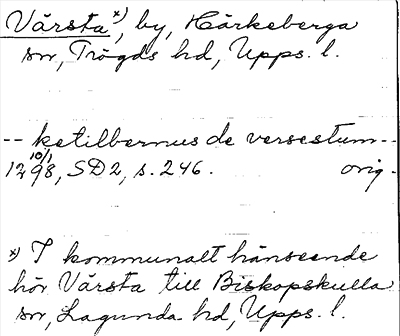 Vårsta x), by, Härkeberga
sn, Trögds hd, Upps. l.
-- ketilbernus de versestum --
12 10/1 98, SD2, s. 246. orig.
x) I kommunalt hänseende
hör Vårsta till Biskopskulla
sn, Lagunda hd, Upps. l.